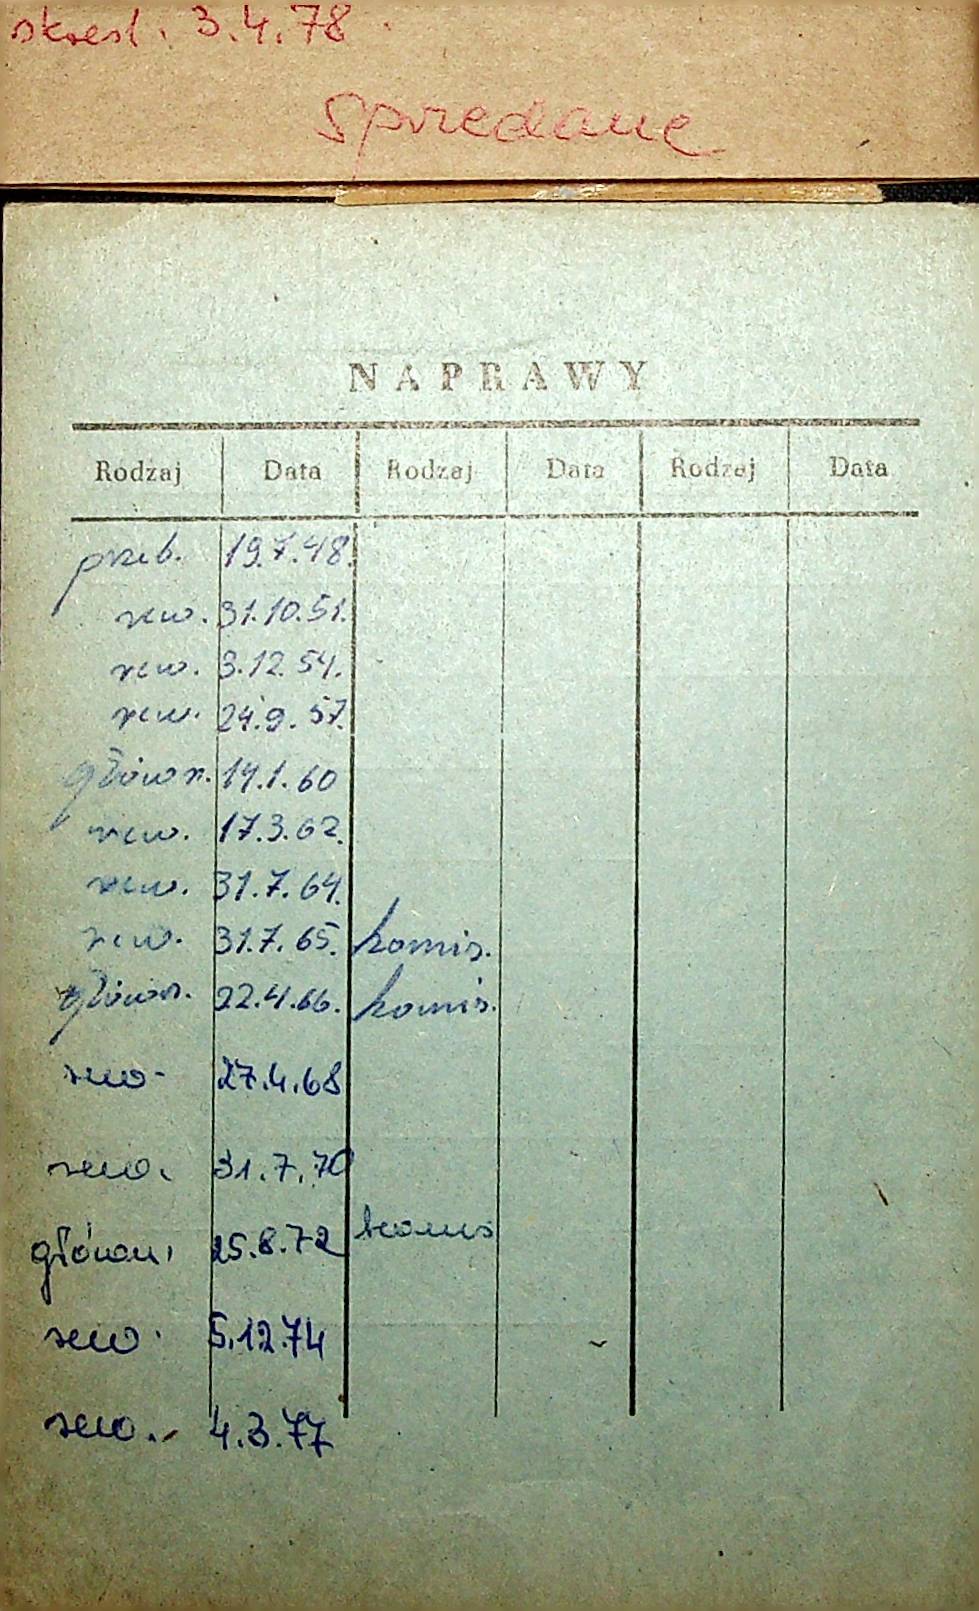 skreśl. 3.4.78
Sprzedane
NAPRAWY
Rodzaj Data Rodzaj Data Rodzaj Data
przeb. 19.7.48.
rew. 31.10.51.
rew. 3.12.54.
rew. 24.9.57.
główn. 14.1.60
rew. 17.3.62.
rew. 31.7.64.
rew. 31.7.65. komis.
główn. 22.4.66. komis.
rew. 27.4.68
rew. 31.7.70
główn. 25.8.72 komis
rew. 5.12.74
rew. 4.3.77